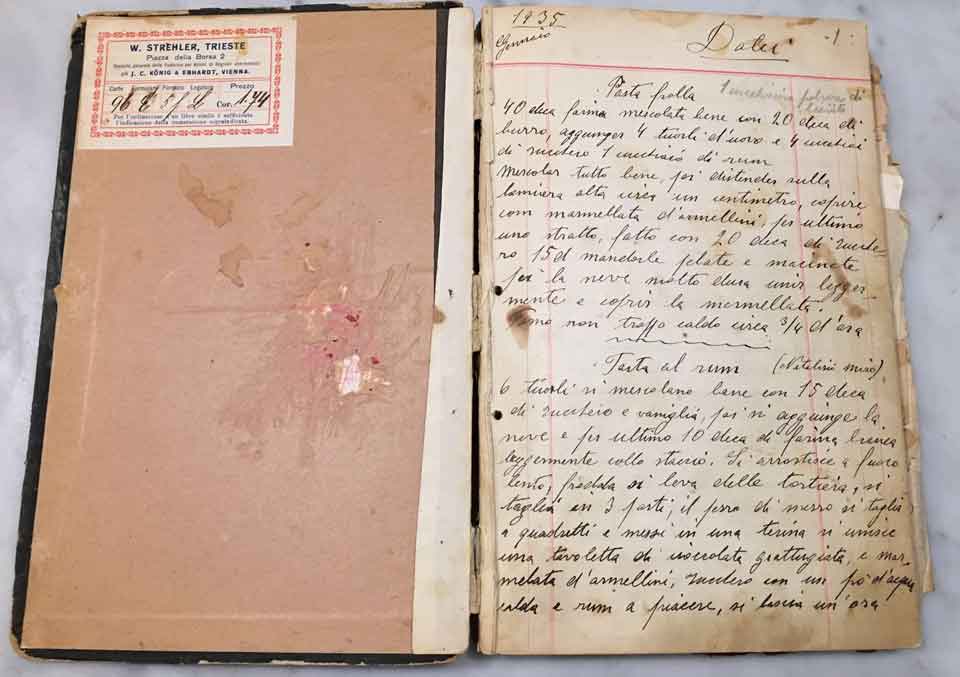 W. STREHLER, TRIESTE
Piazza della Borsa 2
J. C. KÖNIG & EBHARDT, VIENNA.
Carte Formato Legatura Prezzo
96 Cor. 1.74
Per l'ordinazione d'un libro simile è sufficiente
l'indicazione della annotazione sopraindicata.
1935
Gennaio
Dolci
-1-
Pasta frolla
1 cucchiaino polvere di
lievito
40 deca farina mescolata bene con 20 deca di
burro, aggunger 4 tuorli d'uovo e 4 cucchiai
di zucchero 1 cucchiaio di rum
Mescolar tutto bene, poi distender sulla
lamiera alta circa un centimetro, coprire
con marmellata d'armellini, per ultimo
uno stratto, fatto con 20 deca di zucche-
ro 15 d mandorle pelate e macinate
poi la neve molto dura unir legger-
mente e coprir la marmellata.
Forno non troppo caldo circa 3/4 d'ora
Torta al rum
6 tuorli si mescolano bene con 15 deca
di zucchero e vaniglia, poi si aggiunge la
neve e per ultimo 10 deca di farina
leggermente collo staccio. Si arrostisce a fuoco
lento, fredda si leva delle tortiera, si
taglia in 3 parti; il pezzo di mezzo si taglia
a quadretti e messi in una terina si unisce
una tavoletta di cioccolata grattugiata, e mar-
melata d'armellini, zucchero con un pò d'acqua
calda e rum a piacere, si lascia un'ora